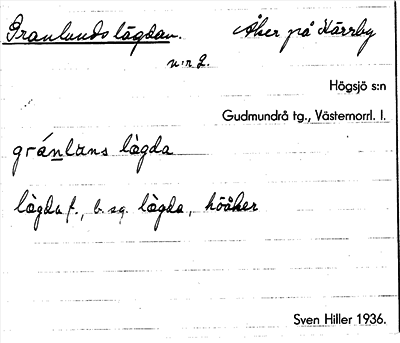 Granlundslägdan. Åker på Kärrby
n:r 2.
Högsjö s:n
Gudmundrå tg., Västernorrl. l.
gránlu̇ns lǻgda
lǻgda f., b. sg. lǻgda, höåker
Sven Hiller 1936.